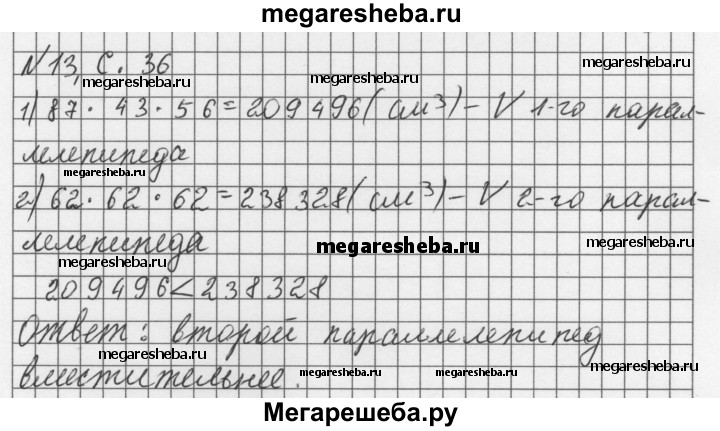 megaresheba.ru
N 13, с. 36
megaresheba.ru megaresheba.ru megaresheba.ru
1) 87 · 43 · 56 = 209 496 (см³) – V 1-го парал-
megaresheba.ru
лелепипеда
megaresheba.ru
2) 62 · 62 · 62 = 238 328 (см³) – V 2-го парал-
лелепипеда
megaresheba.ru megaresheba.ru
megaresheba.ru
209 496 < 238 328
Ответ: второй параллелепипед
megaresheba.ru
вместительнее.
megaresheba.ru megaresheba.ru megaresheba.ru
Мегарешеба.ру